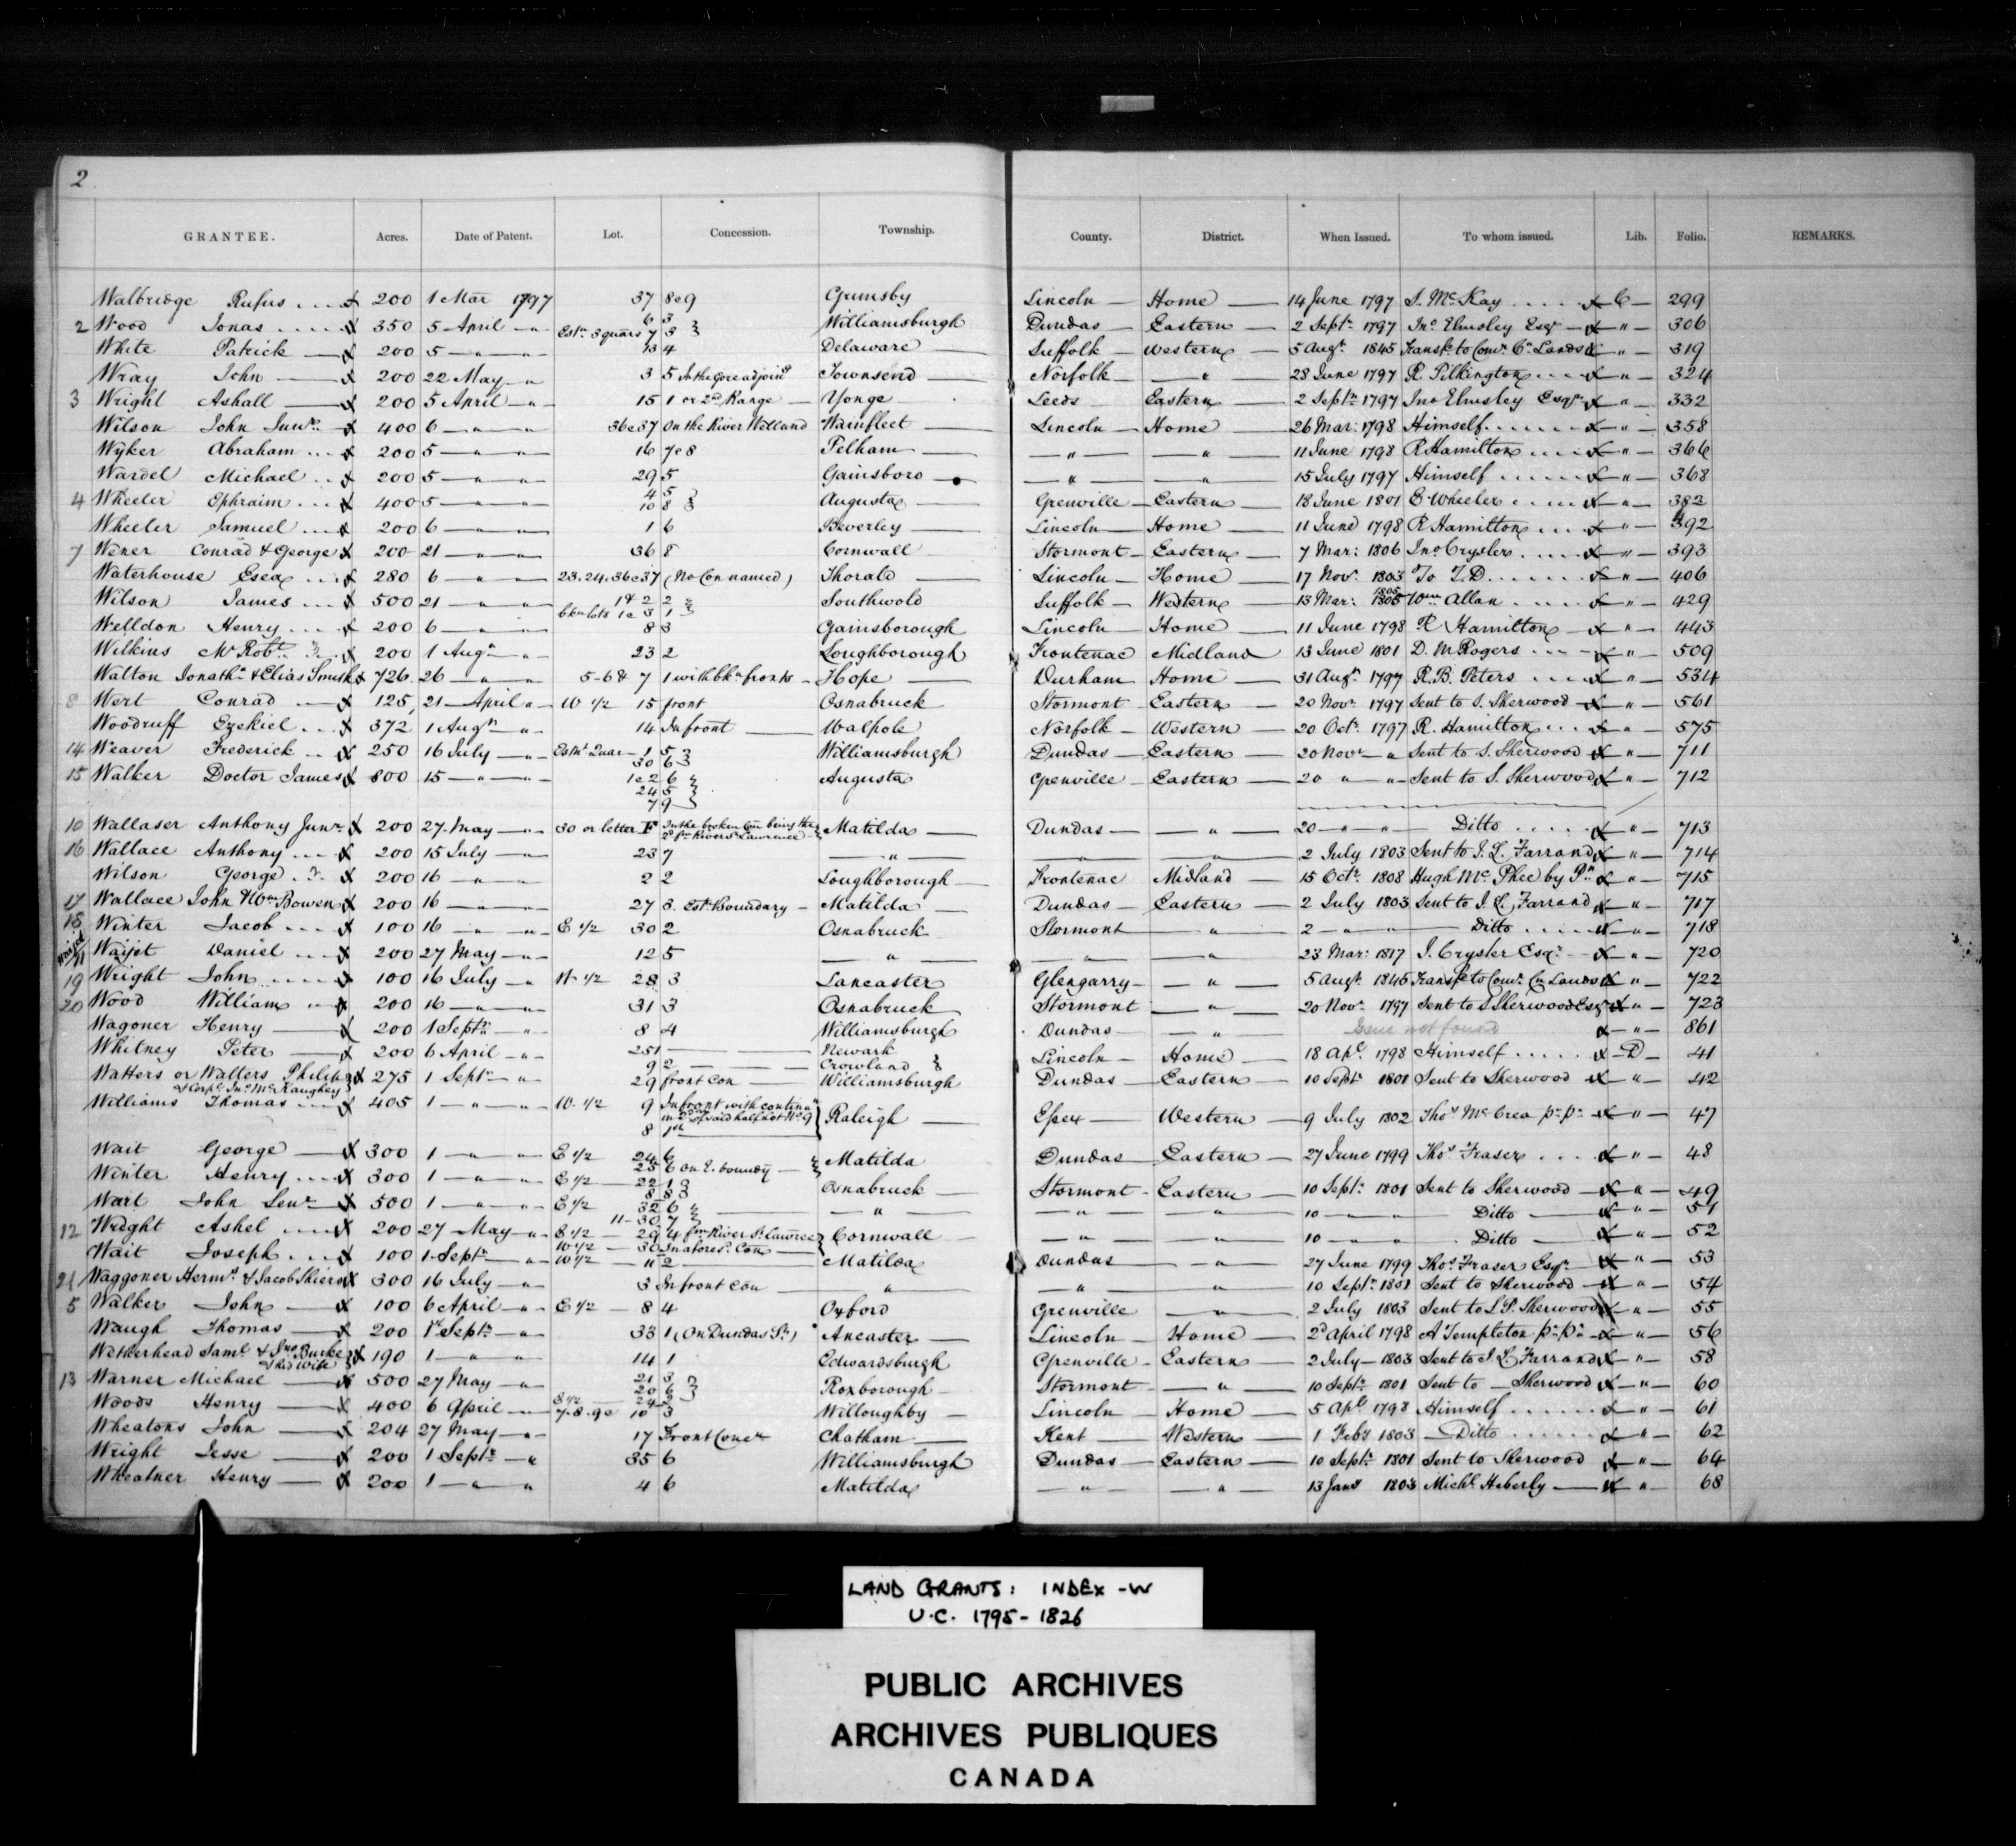 2
GRANTEE. Acres. Date of Patent. Lot. Concession. Township. County. District. When Issued. To whom issued. Lib. Folio. REMARKS.
Walbridge Rufus 200 1 Mar 1797 37 8 e 9 Grimsby Lincoln Home 14 June 1797 S. McKay C 299
2 Wood Jonas 350 5 April " Estn 3 quars 6 3 7 3 Williamsburgh Dundas Eastern 2 Septr 1797 Jno Elmsley Esqr " 306
White Patrick 200 5 " " 13 4 Delaware Suffolk Western 5 Augt 1845 to Comr Cn Lands " 319
Wray John 200 22 May " 3 5 In the Gore adjoing Townsend Norfolk " 28 June 1797 R. Pilkington " 324
3 Wright Ashall 200 5 April " 15 1 or 2nd Range Yonge Leeds Eastern 2 Septr 1797 Jno Elmsley Esqr " 332
Wilson John Junr 400 6 " " 36 e 37 On the River Welland Wainfleet Lincoln Home 26 Mar: 1798 Himself " 358
Wyker Abraham 200 5 " " 16 7 e 8 Pelham " " 11 June 1798 R Hamilton " 366
Wardel Michael 200 5 " " 29 5 Gainsboro " " 15 July 1797 Himself " 368
4 Wheeler Ephraim 400 5 " " 4 5 10 8 Augusta Grenville Eastern 18 June 1801 E Wheeler " 382
Wheeler Samuel 200 6 " " 1 6 Beverley Lincoln Home 11 June 1798 R Hamilton " 392
7 Wener Conrad & George 200 21 " " 36 8 Cornwall Stormont Eastern 7 Mar: 1806 Jno Crysler " 393
Waterhouse Esea 280 6 " " 23. 24. 36 e 37 (No Con named) Thorald Lincoln Home 17 Novr 1803 To T.D. " 406
Wilson James 500 21 " " 1 & 2 2 bkn lots 1 e 3 1 Southwold Suffolk Western 13 Mar: 1805 Wm Allan " 429
Welldon Henry 200 6 " " 8 3 Gainsborough Lincoln Home 11 June 1798 R Hamilton " 443
Wilkins Mr Robt 200 1 Augt " 23 2 Loughborough Frontenac Midland 13 June 1801 D. M Rogers " 509
Walton Jonathn & Elias Smith 726 26 " " 5-6 & 7 1 with bkn fronts Hope Durham Home 31 Augt 1797 R. B. Peters " 534
8 Wert Conrad 125 21 April " W 1/2 15 front Osnabruck Stormont Eastern 20 Novr 1797 Sent to S. Sherwood " 561
Woodruff Ezekiel 372 1 Augt " 14 In front Walpole Norfolk Western 20 Octr 1797 R. Hamilton " 575
14 Weaver Frederick 250 16 July " Estn Quar 1 5 30 6 Williamsburgh Dundas Eastern 20 Novr " Sent to S. Sherwood " 711
15 Walker Doctor James 800 15 " " 1 e 2 6 24 5 7 9 Augusta Grenville Eastern 20 " " Sent to S. Sherwood " 712
10 Wallaser Anthony Junr 200 27 May " 30 or letter F In the broken Con being the 2d fm River St Lawrence Matilda Dundas " 20 " " Ditto " 713
16 Wallace Anthony 200 15 July " 23 7 " " " 2 July 1803 Sent to J. L. Farrand " 714
Wilson George 200 16 " " 2 2 Loughborough Frontenac Midland 15 Octr 1808 Hugh McPhee by Pn " 715
17 Wallace John Wm Bowen 200 16 " 27 3. Estn Boundary Matilda Dundas Eastern 2 July 1803 Sent to J. L. Farrand " 717
18 Winter Jacob 100 16 " " E 1/2 30 2 Osnabruck Stormont " 2 " " Ditto " 718
11 Waijet Daniel 200 27 May " 12 5 " " " 23 Mar: 1817 J. Crysler Esqr " 720
19 Wright John 100 16 July " W 1/2 28 3 Lancaster Glengarry " 5 Augt 1845 to Comr Cn Lands " 722
20 Wood William 200 16 " " 31 3 Osnabruck Stormont " 20 Novr 1797 Sent to S Sherwood Esqr " 723
Wagoner Henry 200 1 Septr " 8 4 Williamsburgh Dundas " Issue not found " 861
Whitney Peter 200 6 April " 251 Newark 9 2 Crowland Lincoln Home 18 Apl 1798 Himself D 41
Watters or Walters Philip & Corpl Jno McKaughey 275 1 Septr " 29 front Con Williamsburgh Dundas Eastern 10 Septr 1801 Sent to Sherwood " 42
Williams Thomas 405 1 " " W. 1/2 9 In front with continn in 2d of said half lot No 9 8 1st Raleigh Essex Western 9 July 1802 Thos McCrea pr pr " 47
Wait George 300 1 " " E 1/2 24 6 25 6 on E. boundy Matilda Dundas Eastern 27 June 1799 Thos Fraser " 48
Winter Henry 300 1 " " E 1/2 22 1 8 8 Osnabruck Stormont Eastern 10 Septr 1801 Sent to Sherwood " 49
Wart John Senr 500 1 " " E 1/2 32 6 11-30 7 " " " 10 " " Ditto " 51
12 Wright Ashel 200 27 May " E 1/2 29 4 fm River St Lawrce W 1/2 30 In aforesd Con Cornwall " " 10 " " Ditto " 52
Wait Joseph 100 1 Septr " W 1/2 11 2 Matilda Dundas " 27 June 1799 Thos Fraser Esqr " 53
21 Waggoner Hermn & Jacob Skiers 300 16 July " 3 In front Con " " " 10 Septr 1801 Sent to Sherwood " 54
5 Walker John 100 6 April " E 1/2 8 4 Oxford Grenville " 2 July 1803 Sent to L P. Sherwood " 55
Waugh Thomas 200 1st Septr " 33 1 (On Dundas St) Ancaster Lincoln Home 2d April 1798 A Templeton pr pr " 56
Wetherhead Saml & Jno Burke & his wife 190 1 " " 14 1 Edwardsburgh Grenville Eastern 2 July 1803 Sent to J. L Farrand " 58
13 Warner Michael 500 27 May " 21 3 20 6 E 1/2 24 2 Roxborough Stormont " 10 Septr 1801 Sent to Sherwood " 60
Woods Henry 400 6 April " 7. 8. 9 e 10 3 Willoughby Lincoln Home 5 Apl 1798 Himself " 61
Wheatons John 204 27 May " 17 Front Concn Chatham Kent Western 1 Feby 1803 Ditto " 62
Wright Jesse 200 1 Septr " 35 6 Williamsburgh Dundas Eastern 10 Septr 1801 Sent to Sherwood " 64
Wheatner Henry 200 1 " " 4 6 Matilda " " 13 Jany 1803 Michl Heberly " 68
LAND GRANTS: INDEX -W
U.C. 1795-1826
PUBLIC ARCHIVES
ARCHIVES PUBLIQUES
CANADA